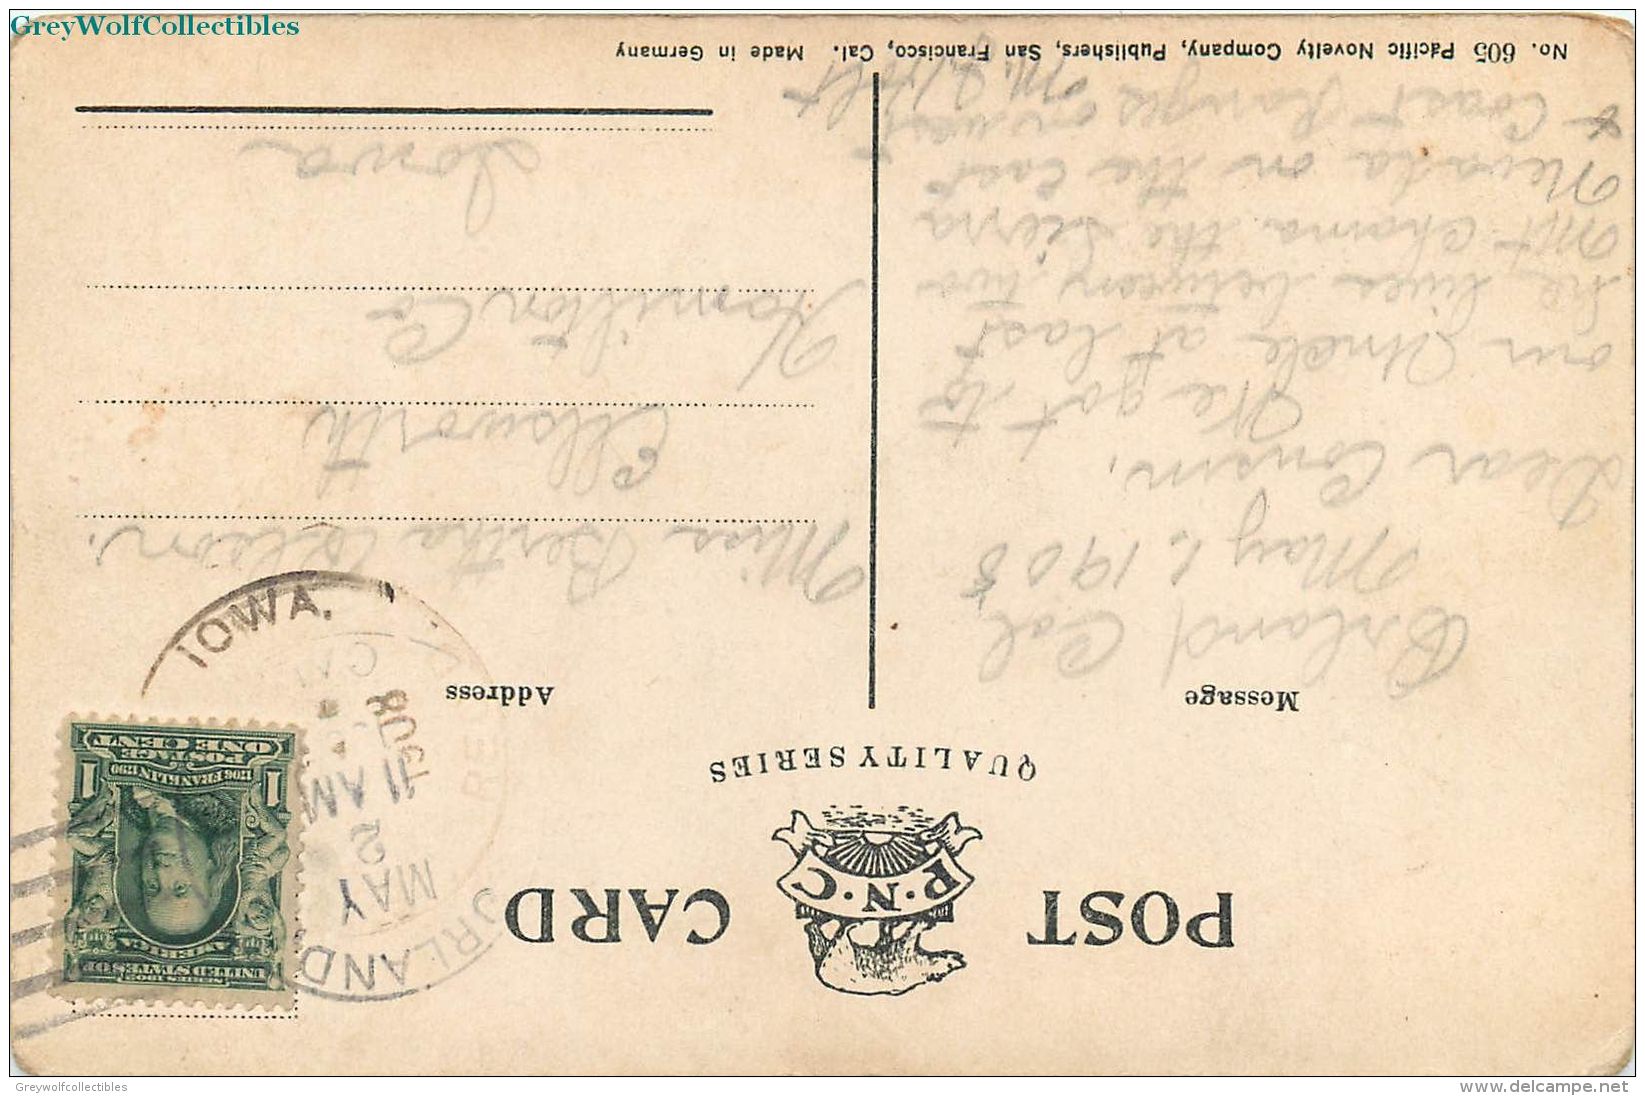 GreyWolfCollectibles
POST CARD
P·N·C
QUALITY SERIES
Message
Address
Orland Cal,
May 1, 1908
Dear Cousin,
We got to
our Uncle at last
he lives between two
Mt chains the Sierra
Nevada on the east
& Coast Ranges on west
Miss Bertha
Ellsworth
Hamilton Co
Iowa
ORLAND
MAY
2
11 AM
CAL
IOWA.
REC
SERIES 1902
UNITED STATES OF
AMERICA
1706 FRANKLIN 1790
1 1
POSTAGE
ONE CENT
No. 605 Pacific Novelty Company, Publishers, San Francisco, Cal. Made in Germany
Greywolfcollectibles
www.delcampe.net